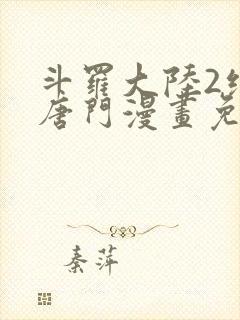 斗羅大陸2
唐門漫畫免
秦萍